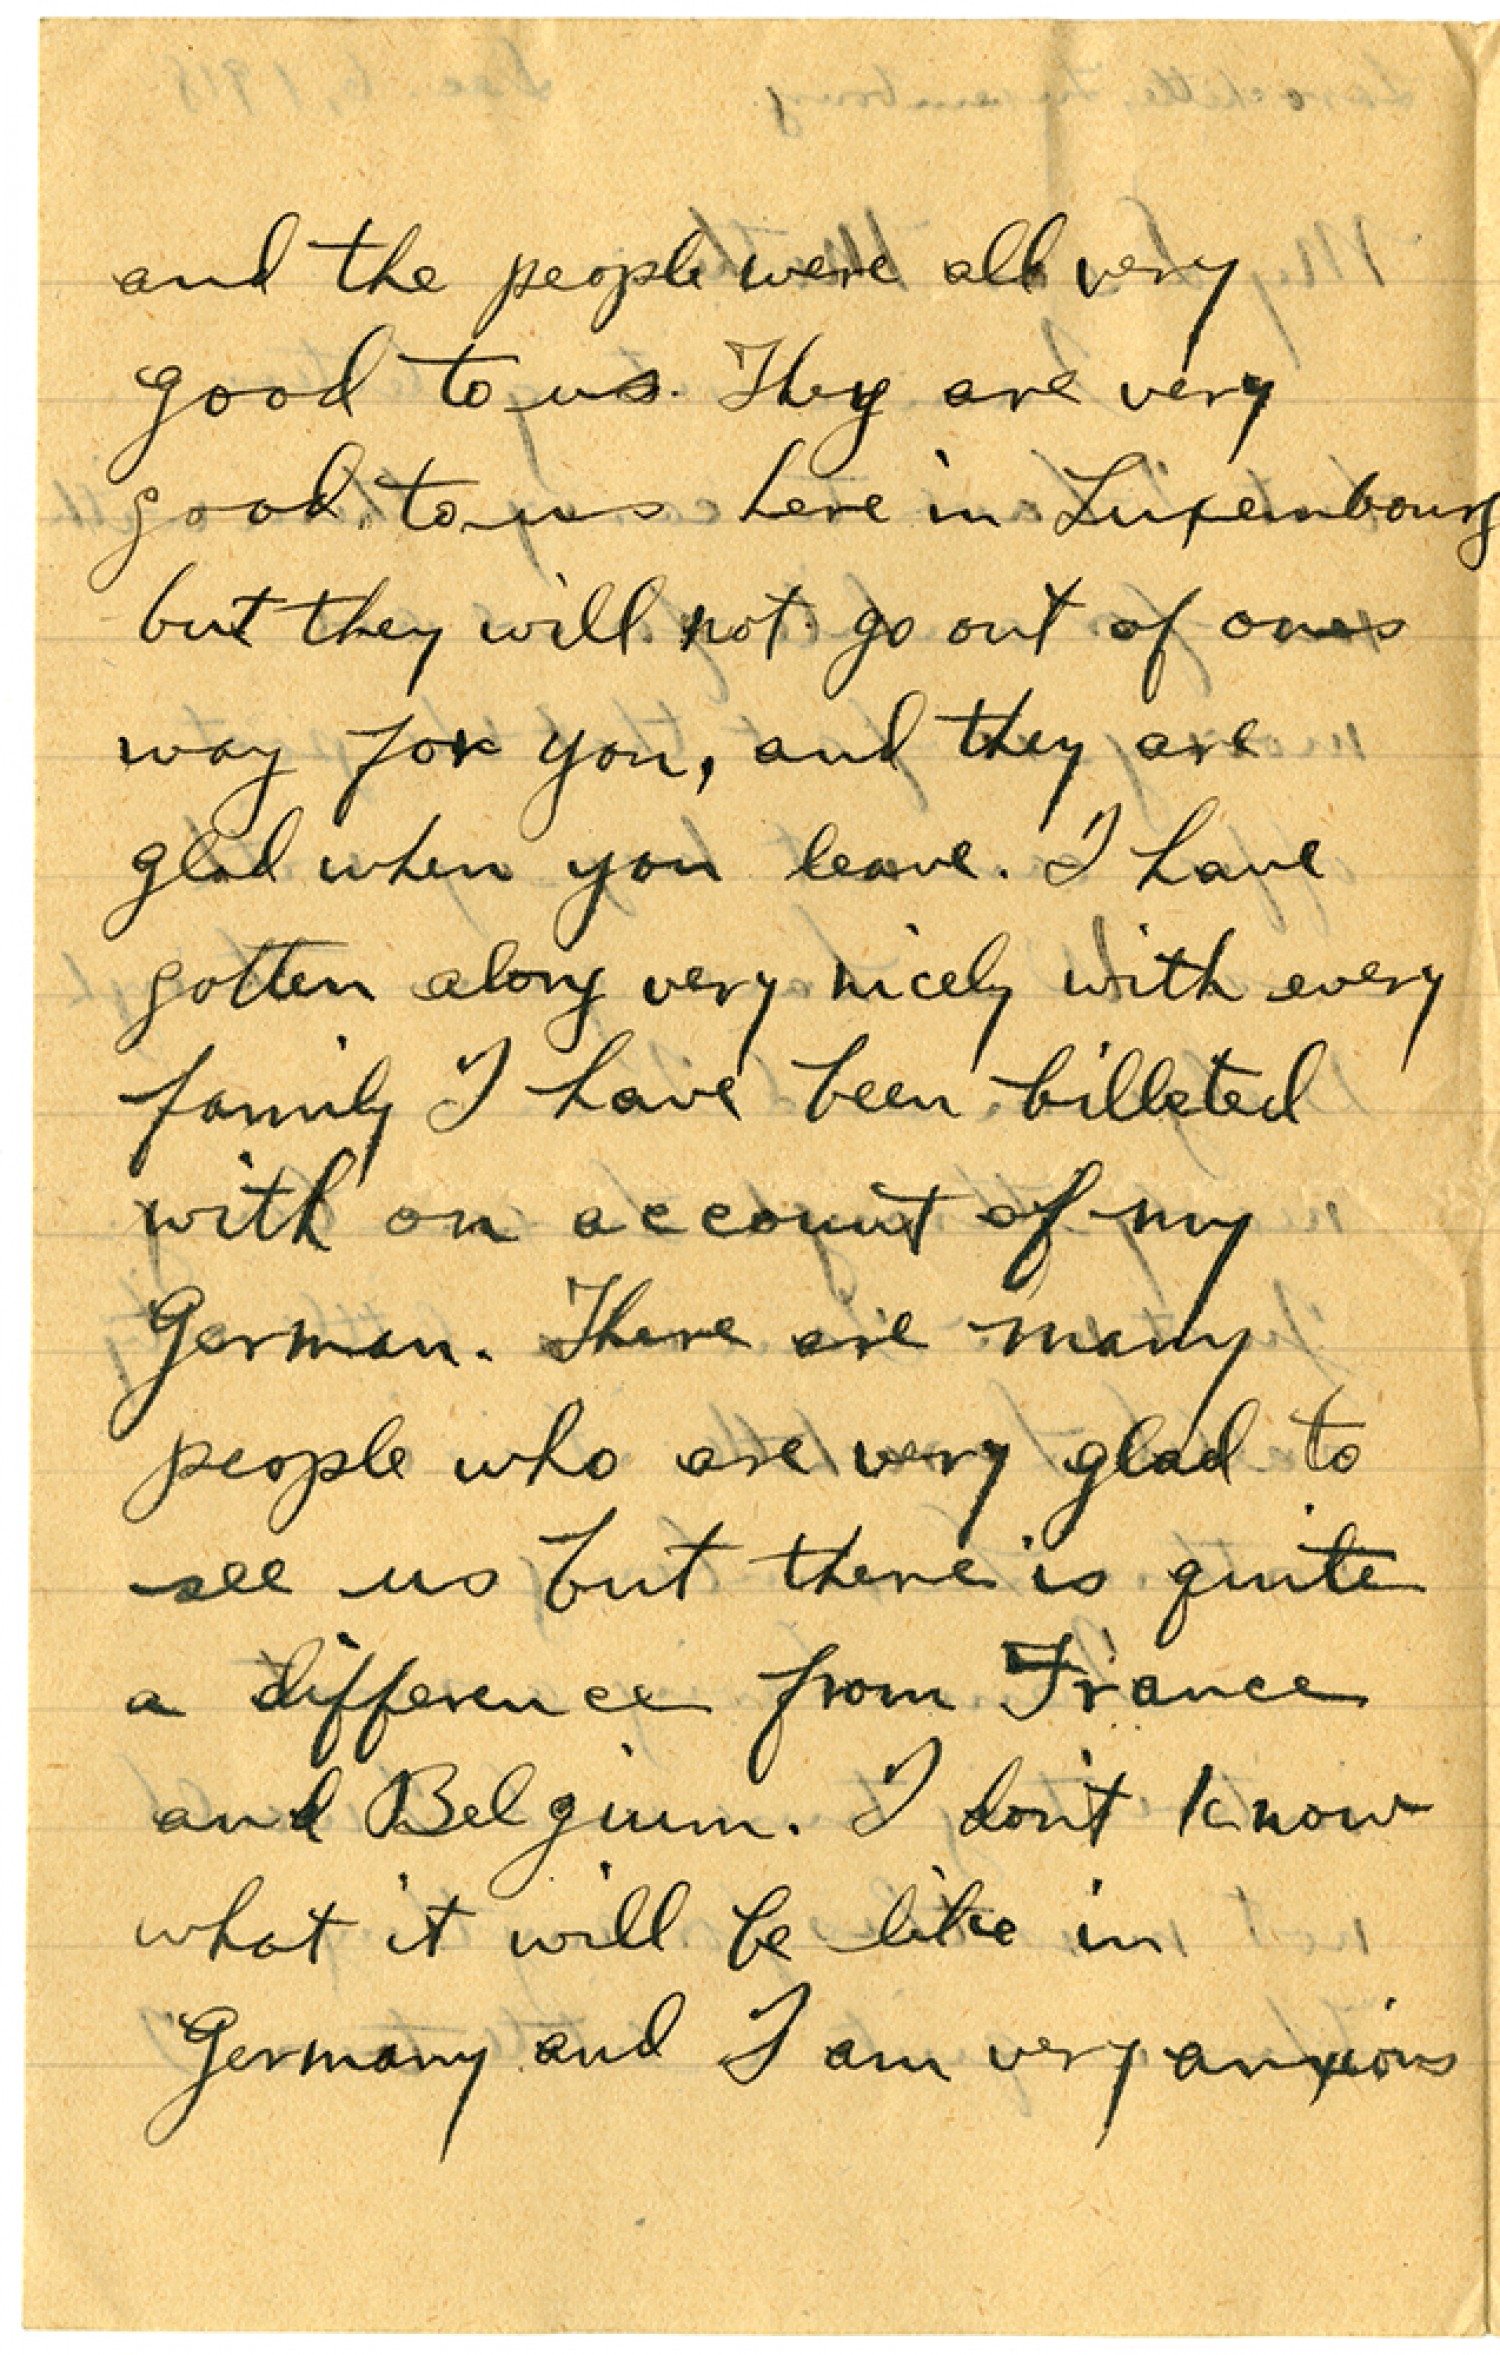 and the people were all very
good to us. They are very
good to us here in Luxembourg
but they will not go out of ones
way for you, and they are
glad when you leave. I have
gotten along very nicely with every
family I have been billeted
with on account of my
German. There are many
people who are very glad to
see us but there is quite
a difference from France
and Belgium. I don't know
what it will be like in
Germany and I am very anxious